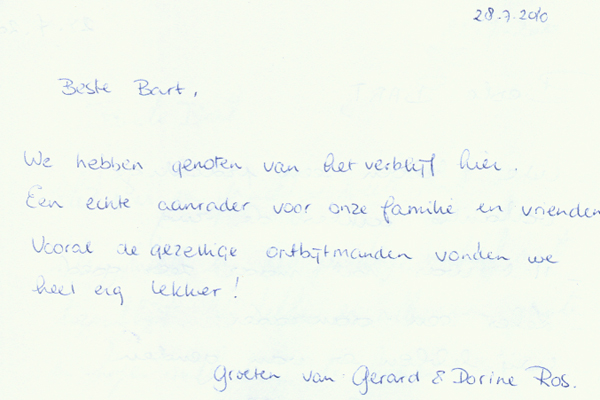 28.7.2010
Beste Bart,
We hebben genoten van het verblijf hier.
Een echte aanrader voor onze familie en vrienden
Vooral de gezellige ontbijtmanden vonden we
heel erg lekker!
Groeten van Gerard & Dorine Ros.